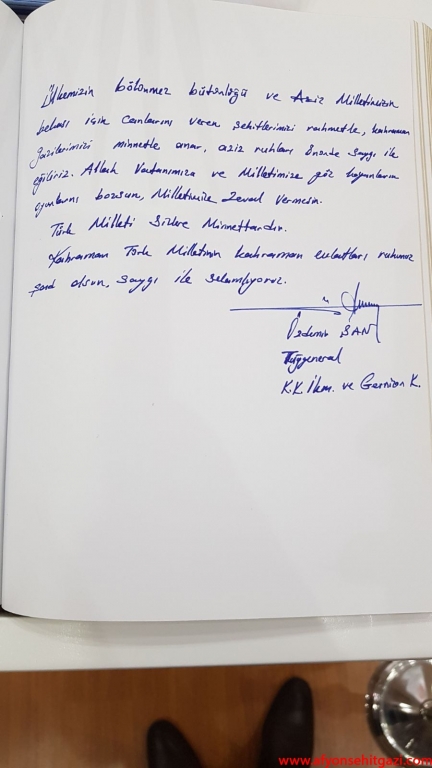 Ülkemizin bölünmez bütünlüğü ve Aziz Milletimizin
bekası için canlarını veren şehitlerimizi rahmetle, kahraman
gazilerimizi minnetle anar, aziz ruhları önünde saygı ile
eğiliriz. Allah Vatanımıza ve Milletimize göz koyanların
oyunlarını bozsun, Milletimize Zeval Vermesin.
Türk Milleti Sizlere Minnettardır.
Kahraman Türk Milletinin kahraman evlatları ruhunuz
şad olsun, saygı ile selamlıyoruz.
Özdemir ŞAN
Tuğgeneral
K.K. İkm. ve Garnizon K.
www.afyonsehitgazi.com